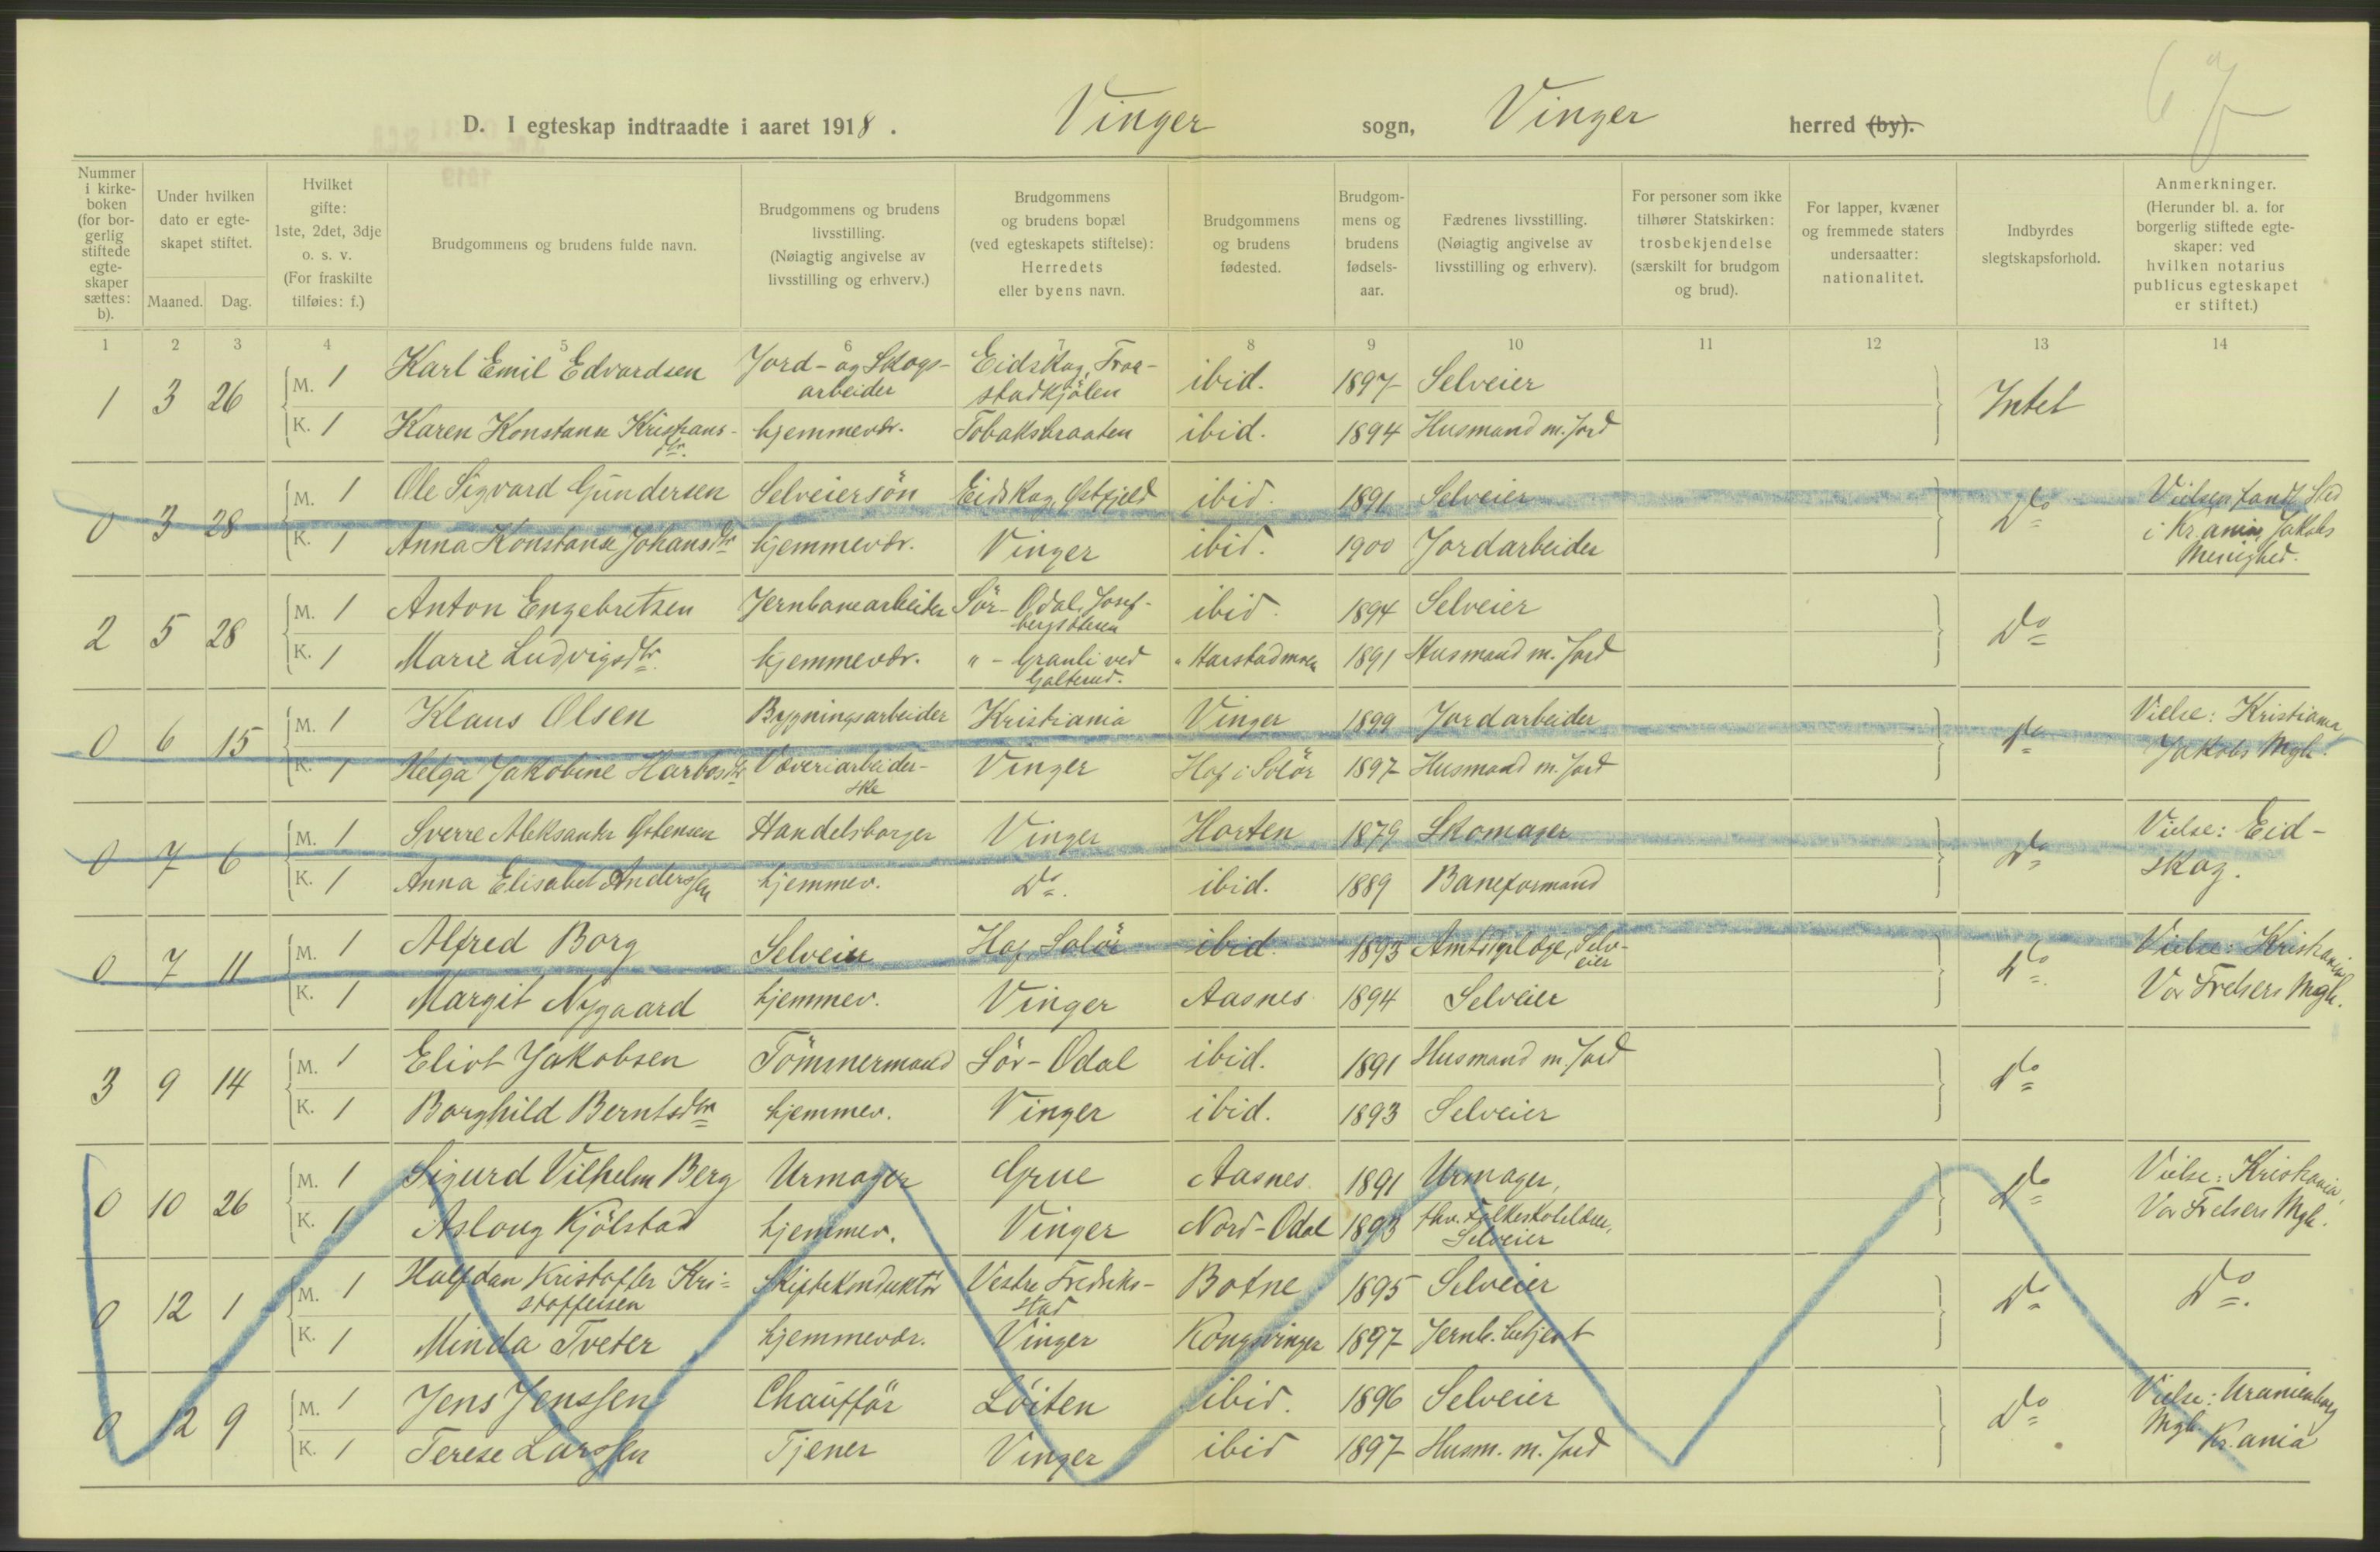 D. I egteskap indtraadte i aaret 1918. Vinger sogn, Vinger herred (by).
Nummer i kirke- boken (for bor- gerlig stiftede egte- skaper sættes: b).
Under hvilken dato er egte- skapet stiftet.
Maaned. Dag.
Hvilket gifte: 1ste, 2det, 3dje o. s. v. (For fraskilte tilføies: f.)
Brudgommens og brudens fulde navn.
Brudgommens og brudens livsstilling. (Nøiagtig angivelse av livsstilling og erhverv.)
Brudgommens og brudens bopæl (ved egteskapets stiftelse): Herredets eller byens navn.
Brudgommens og brudens fødested.
Brudgom- mens og brudens fødsels- aar.
Fædrenes livsstilling. (Nøiagtig angivelse av livsstilling og erhverv).
For personer som ikke tilhører Statskirken: trosbekjendelse (særskilt for brudgom og brud).
For lapper, kvæner og fremmede staters undersaatter: nationalitet.
Indbyrdes slegtskapsforhold.
Anmerkninger. (Herunder bl. a. for borgerlig stiftede egte- skaper: ved hvilken notarius publicus egteskapet er stiftet.)
1 2 3 4 5 6 7 8 9 10 11 12 13 14
1 3 26 M. 1 Karl Emil Edvardsen Jord- og Skogs- arbeider Eidskog, Fraa- stadkjölen ibid. 1897 Selveier Intet
K. 1 Karen Konstanse Kristians- dtr. hjemmevær. Tobaksbraaten ibid. 1894 Husmand m. Jord
0 3 28 M. 1 Ole Sigvard Gundersen Selveiersön Eidskog, Østfjeld ibid. 1891 Selveier Do Vielsen fandt Sted i Kr.ania, Jakobs Menighed.
K. 1 Anna Konstanse Johansdtr hjemmevær. Vinger ibid. 1900 Jordarbeider
2 5 28 M. 1 Anton Engebretsen Jernbanearbeider Sör-Odal, ibid. 1894 Selveier Do
K. 1 Marie Ludvigsdtr. hjemmevær. " - Granli ved Galterud. " Harstadmoen 1891 Husmand m. Jord
0 6 15 M. 1 Klaus Olsen Bygningsarbeider Kristiania Vinger 1899 Jordarbeider Do Vielse: Kristiania, Jakobs Mgh.
K. 1 Helga Jakobine Harbosdtr Væveriarbeider- ske Vinger Hof i Solör 1897 Husmand m. Jord
0 7 6 M. 1 Sverre Aleksander Østensen Handelsborger Vinger Horten 1879 Skomager Do Vielse: Eid- skog.
K. 1 Anna Elisabet Anderssen hjemmev. Do. ibid. 1889 Baneformand
0 7 11 M. 1 Alfred Borg Selveier Hof, Solör ibid. 1893 Selv- eier Do Vielse: Kristiania Vor Frelsers Mgh.
K. 1 Margit Nygaard hjemmev. Vinger Aasnes 1894 Selveier
3 9 14 M. 1 Eliot Jakobsen Tömmermand Sör-Odal ibid. 1891 Husmand m. Jord Do
K. 1 Borghild Berntsdtr hjemmev. Vinger ibid. 1893 Selveier
0 10 26 M. 1 Sigurd Vilhelm Berg Urmager Grue Aasnes. 1891 Urmager, Do Vielse: Kristiania, Vor Frelsers Mgh.
K. 1 Aslaug Kjölstad hjemmev. Vinger Nord-Odal 1893 fhv. Folkeskolelærer, Selveier
0 12 1 M. 1 Halfdan Kristoffer Kri- stoffersen Skiftekonduktör Vestre Fredriks- stad Botne 1895 Selveier Do Do.
K. 1 Minda Tveter hjemmevær. Vinger Kongsvinger 1897 Jernb. betjent
0 12 9 M. 1 Jens Jenssen Chaufför Löiten ibid. 1896 Selveier Do Vielse: Uranienborg Mgh. Kr.ania
K. 1 Terese Larssen Tjener Vinger ibid 1897 Husm. m. Jord